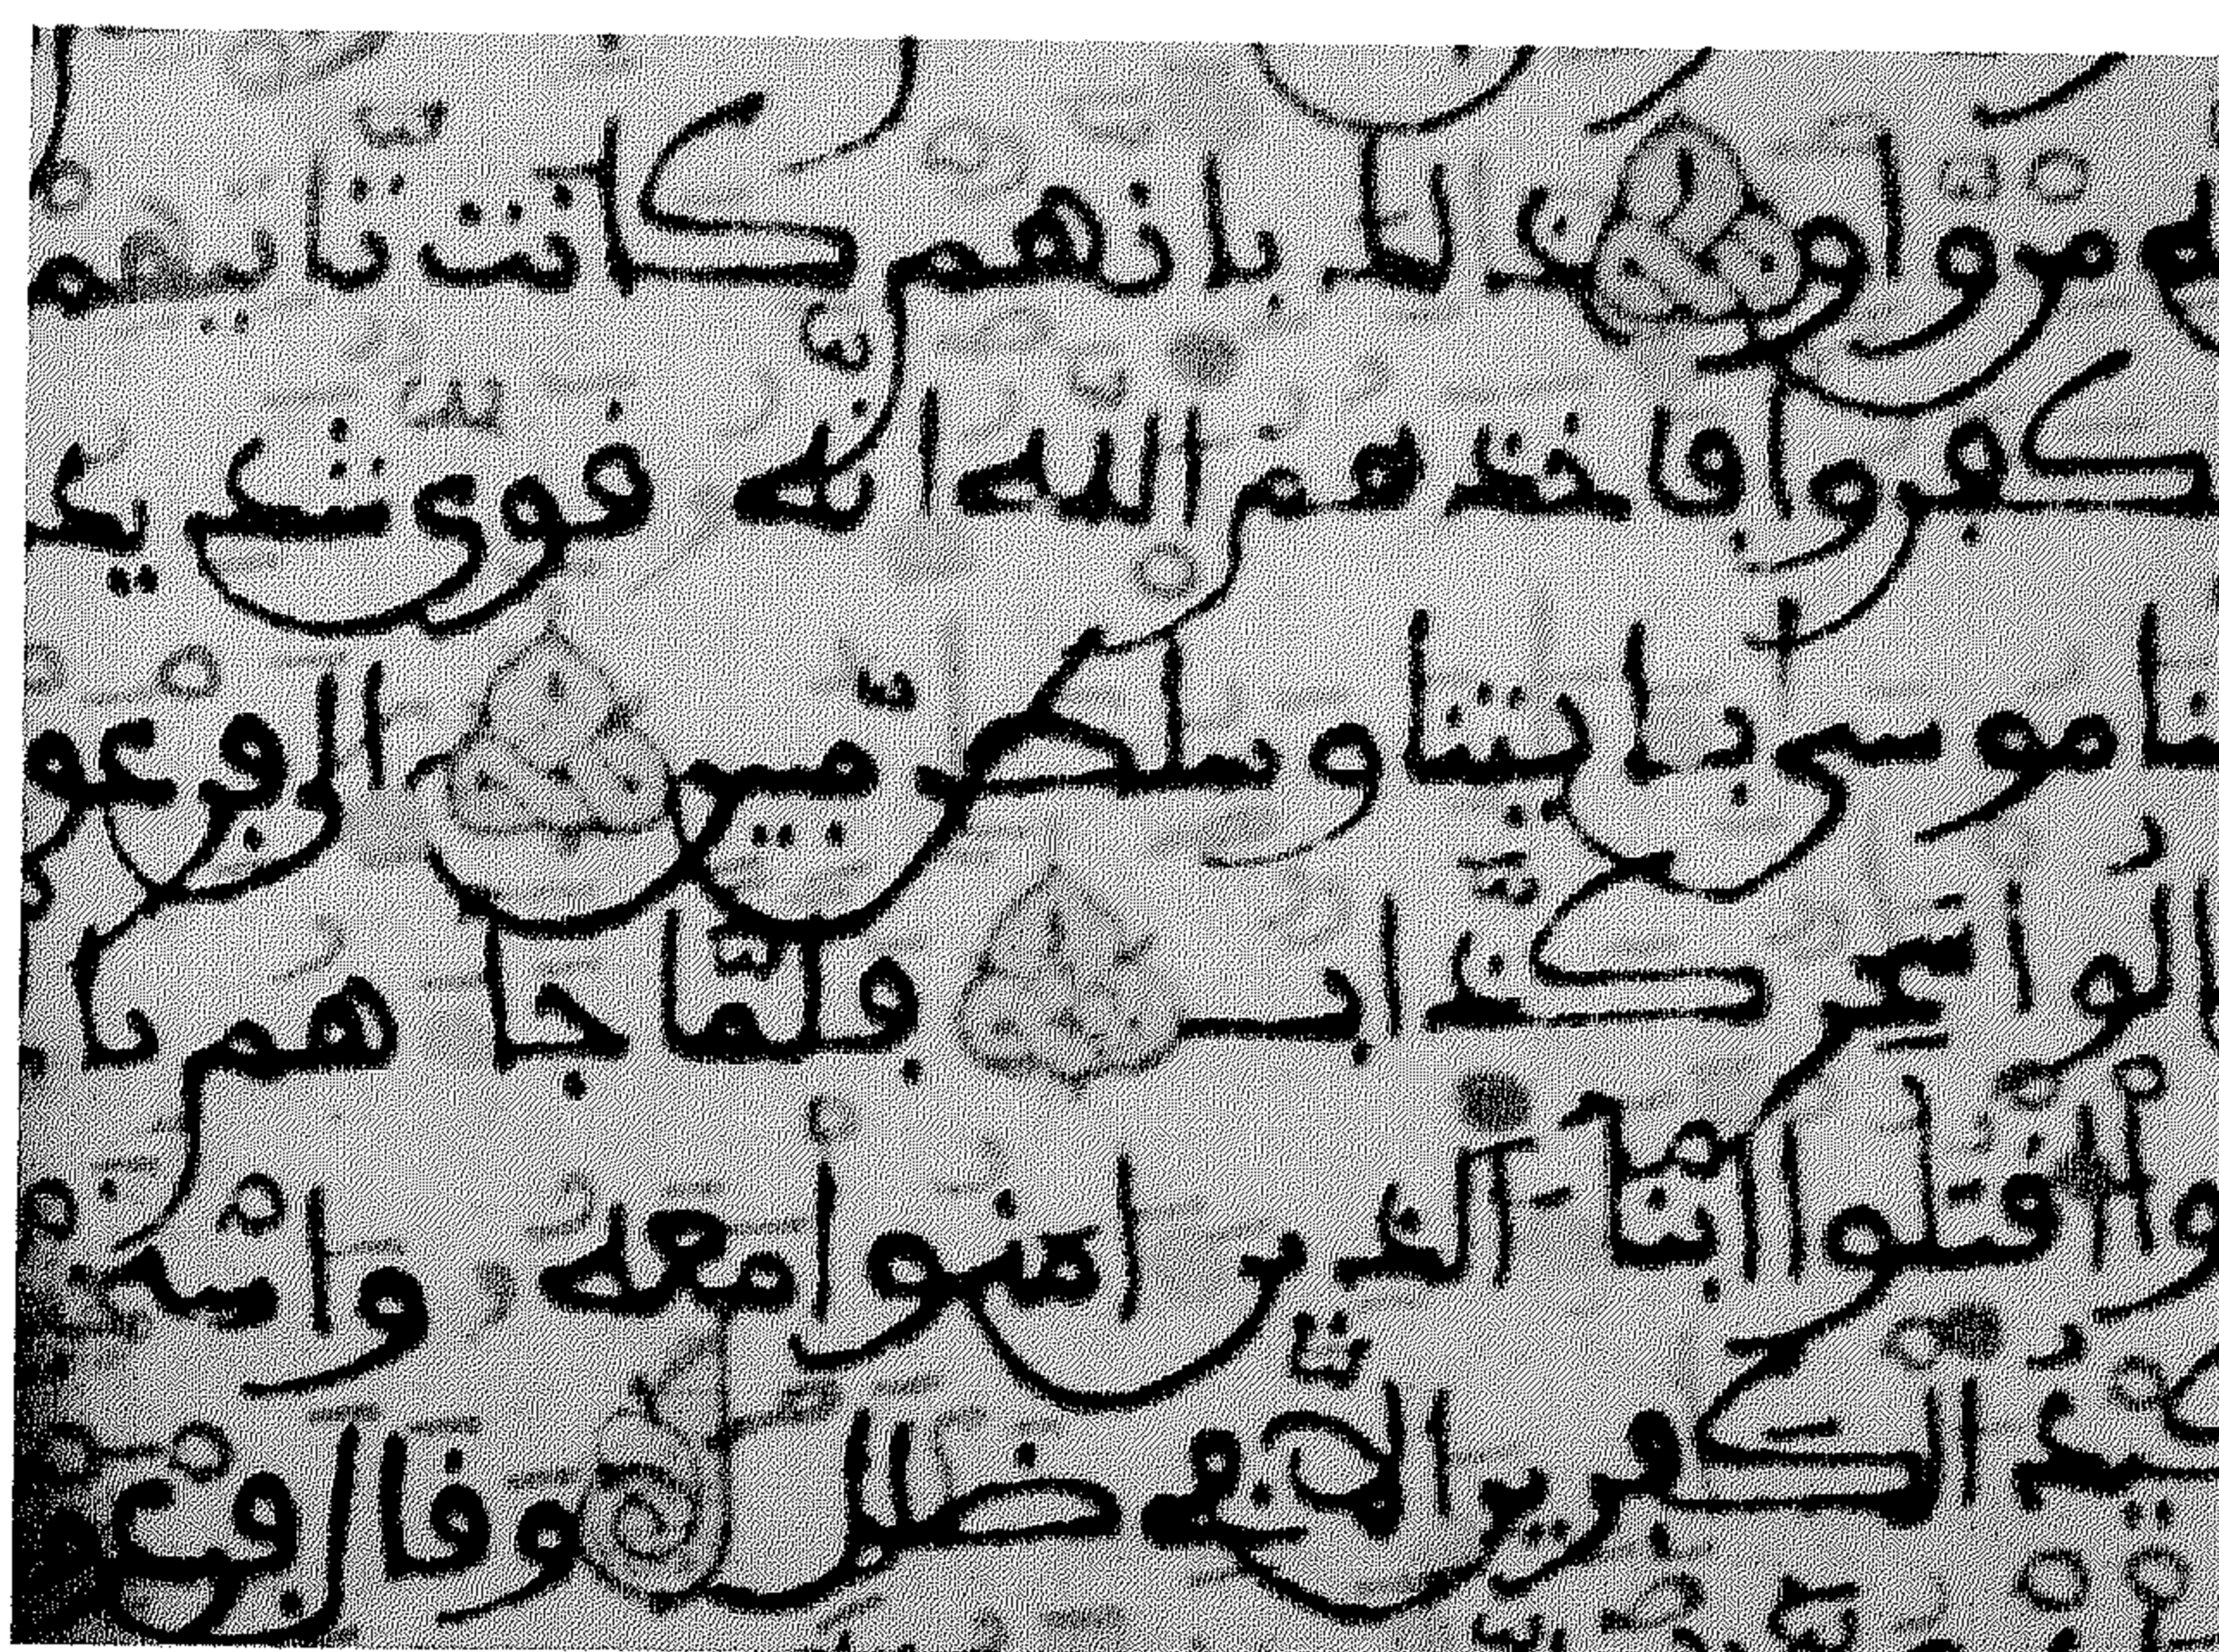 له من واق ذلك بانهم كانت تاتيهم
كفروا فاخذهم الله انه قوى شديد
ـنا موسى بايتنا وسلطن مبين الى فرعو
ـالوا سحر كذاب فلما جاهم با
ـوا اقتلوا ابنا الذين امنوا معه واستـ
كيد الكفرين الا فى ضلل وقال فرعـ